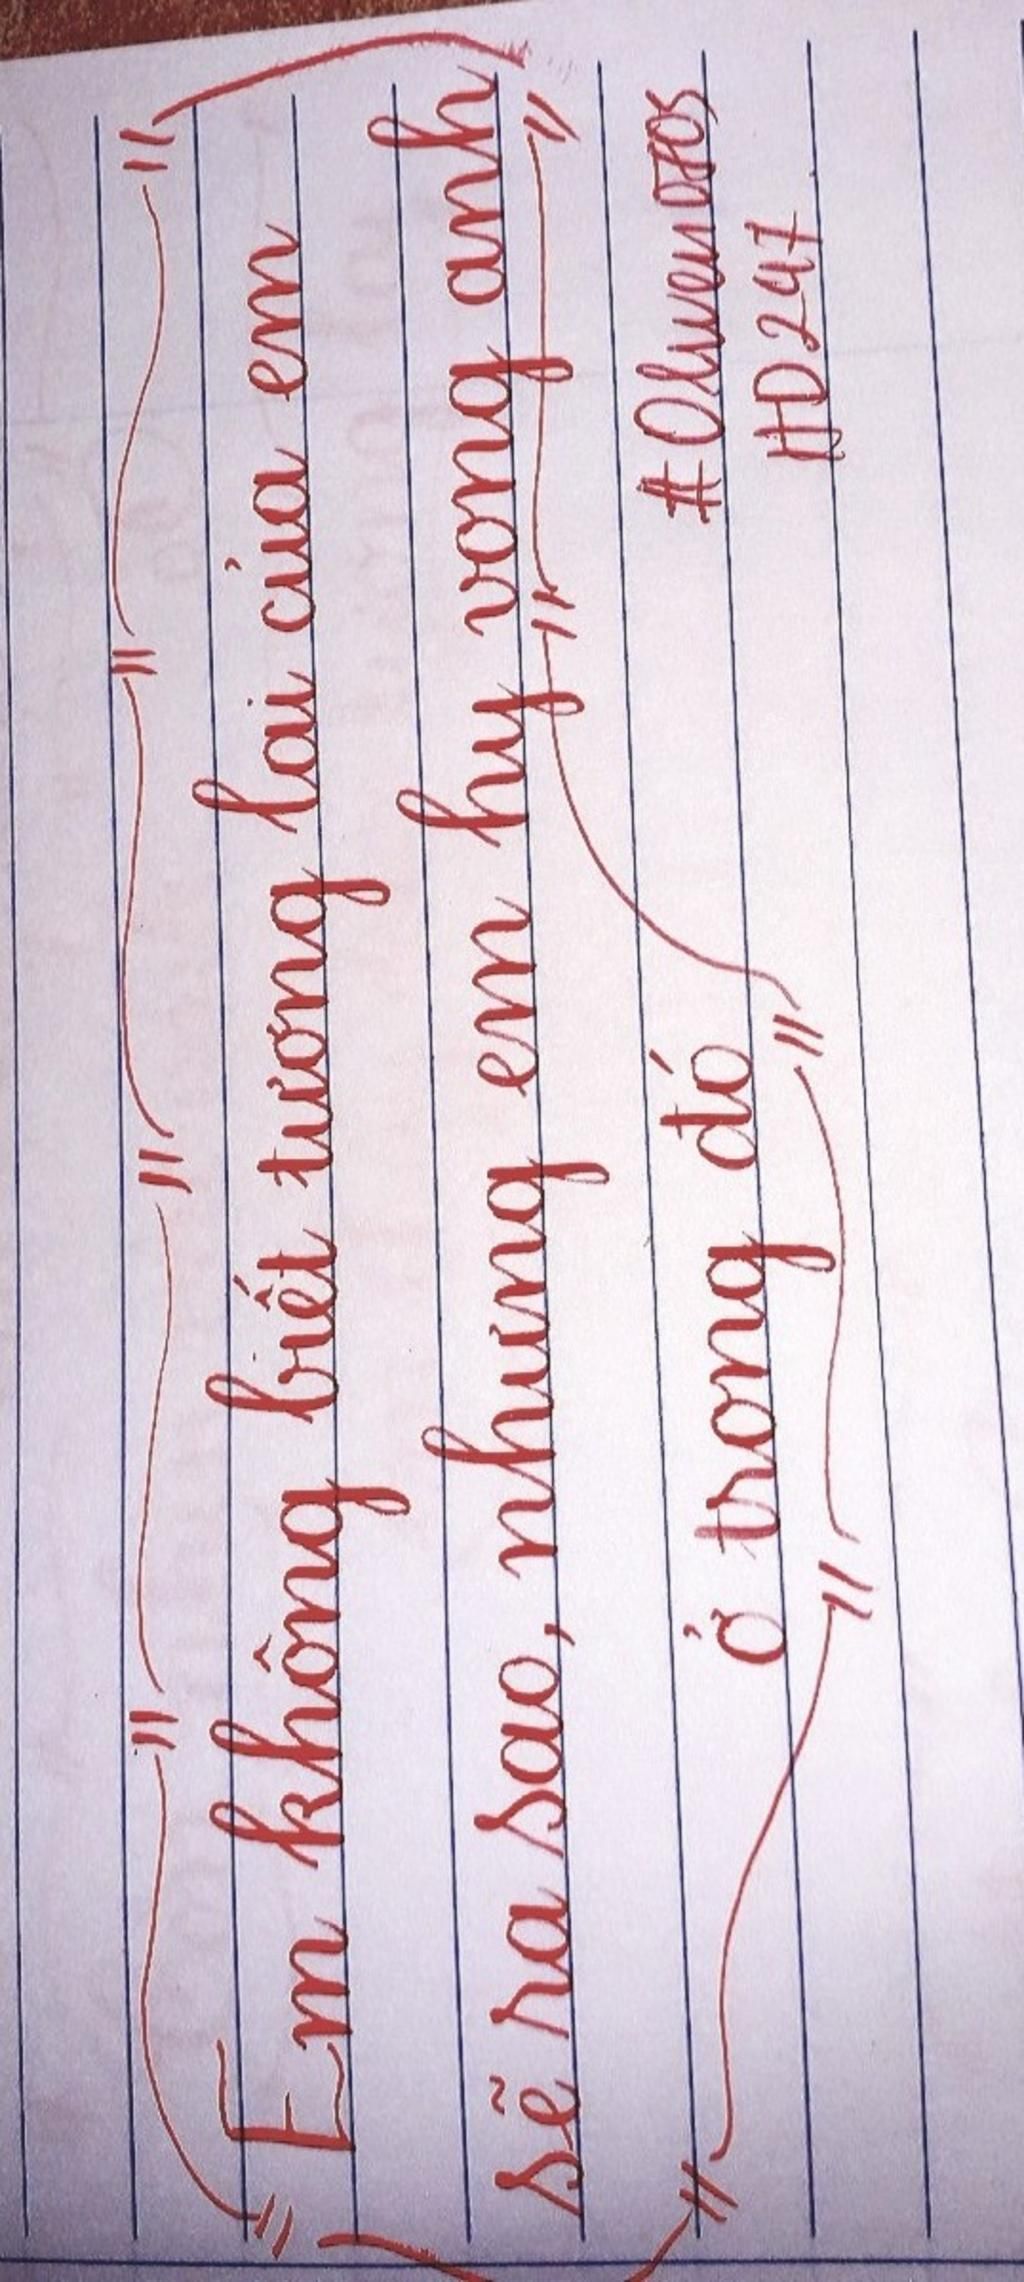 Em không biết tương lai của em
sẽ ra sao, nhưng em hy vọng anh
ở trong đó
HD247